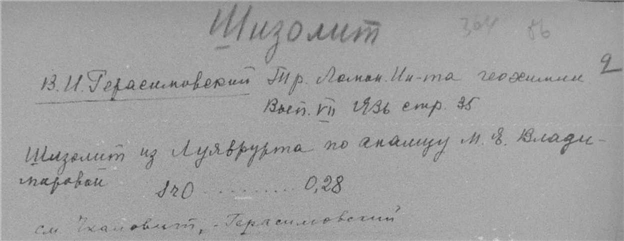 Шизолит
304 86
В. И. Герасимовский Тр. Ломон. Ин-та геохимии 2
Вып. VII 1936 стр. 35
Шизолит из Луяврурта по анализу М. Е. Влади-
мировой SrO .......... 0,28
см Чкаловит, - Герасимовский